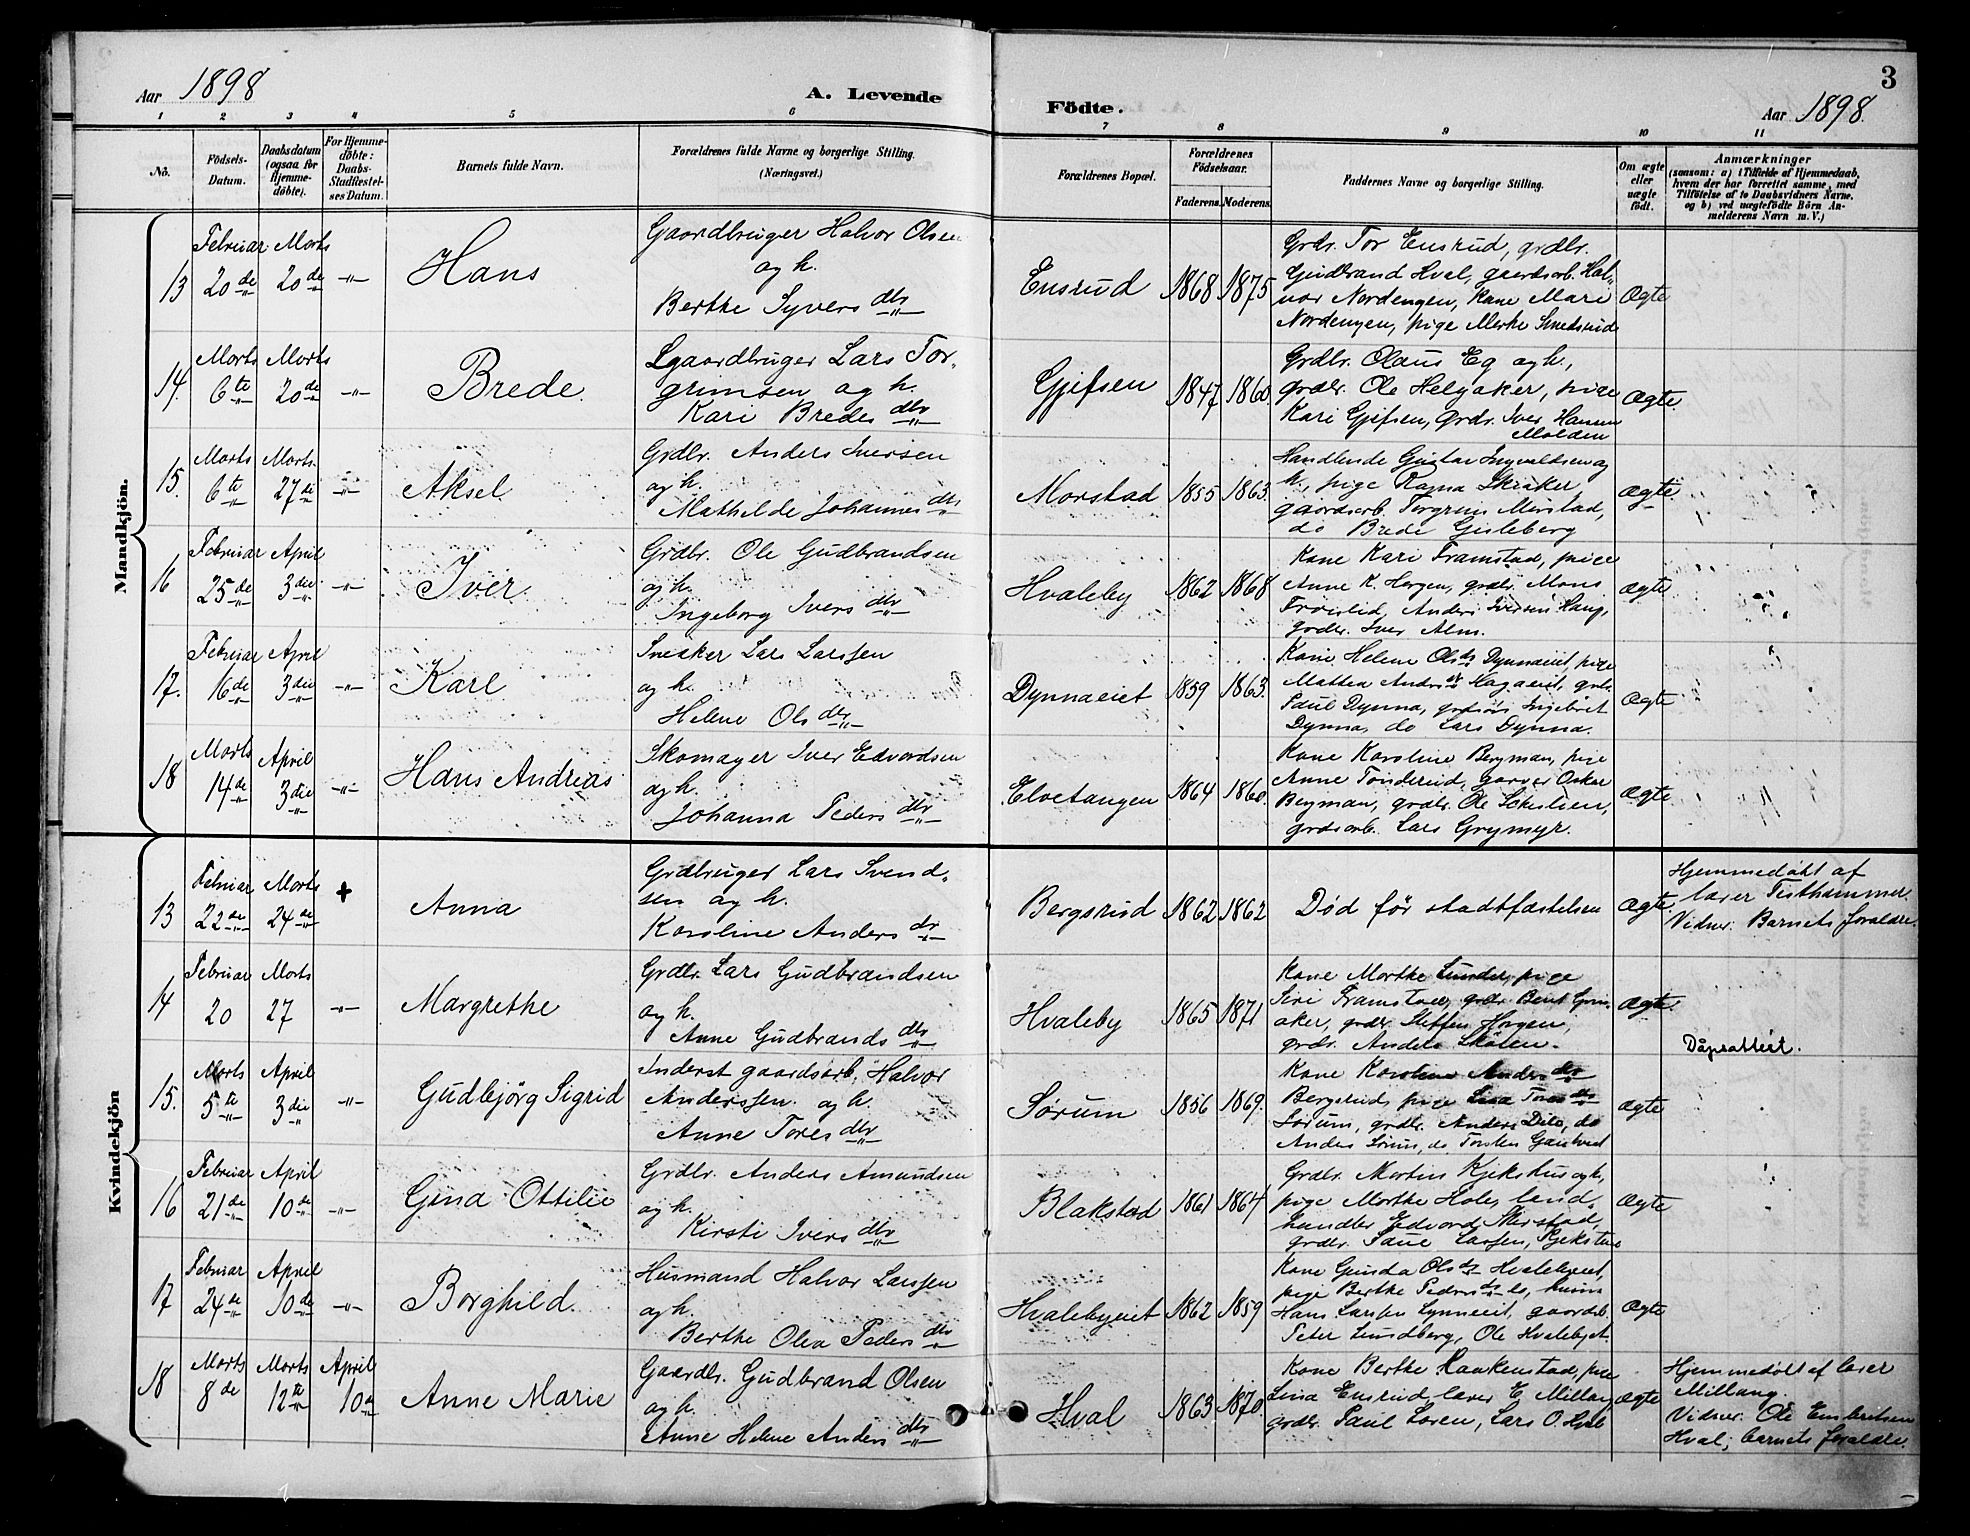 3
Aar 1898 A. Levende Födte. Aar 1898.
1 2 3 4 5 6 7 8 9 10 11
No.
Födsels-
Datum.
Daabsdatum
(ogsaa for
Hjemme-
döbte).
For Hjemme-
döbte:
Daabs-
Stadfæstel-
ses Datum.
Barnets fulde Navn.
Forældrenes fulde Navne og borgerlige Stilling.
(Næringsvei.)
Forældrenes Bopæl.
Forældrenes
Födselsaar.
Faderens. Moderens.
Faddernes Navne og borgerlige Stilling.
Om ægte
eller
uægte
födt.
Anmærkninger
(saasom: a) i Tilfælde af Hjemmedaab,
hvem der har forrettet samme, med
Tilföielse af to Daabsvidners Navne,
og b) ved uægtefödte Börn An-
melderens Navn m. V.)
Mandkjön.
13
Februar
20de
Marts
20de
-"-
Hans
Gaardbruger Halvor Olsen
og h.
Berthe Syvers dtr
Ensrud
1868 1875
Grdr. Tor Ensrud, grdbr.
Gudbrand Hval, gaardsarb. Hal-
vor Nordengen, kone Mari
Nordengen, pige Merthe Smedsrud
Ægte
14.
Marts
6te
Marts
20de
-"-
Brede.
Lars Tor-
grimsen og h.
Kari Bredes dtr
Gjefsen
1847 1860.
Grdbr. Olaus Eg og h.,
grdbr. Ole Helgaker, pige
Kari Gjefsen, grds. Iver Hansen
Molden
Ægte.
15.
Marts
6te
Marts.
27de
-"-
Aksel
Grdbr. Anders Iversen
og h.
Mathilde Johannes dtr
Morstad
1855 1863.
Handlende Gustav Ingvaldsen og
h., pige Ragna Skraker
gaardsarb. Torgrim Morstad,
do Brede Gisleberg
Ægte
16
Februar
25de
April
3die
-"-
Iver.
Grdbr. Ole Gudbrandsen
og h.
Ingeborg Ivers dtr
Hvaleby
1862 1868
Kone Kari Framstad, pige
Anne K. Horgen, grdbr. Mons
Frøislid, Anders Iversen Haug,
grdbr. Iver Alm.
Ægte
17.
Februar
16de
April
3die
-"-
Karl
Snekker Lars Larssen
og h.
Helene Ols dtr
Dynnaeiet
1859 1863.
Kone Helene Olsdr Dynnaeiet, pige
Mathea Andrsdr Hagaeiet, grdbr.
Paul Dynna, Ingebret
Dynna, do Lars Dynna.
Ægte
18
Marts
14de
April
3die
-"-
Hans Andreas
Skomager Iver Edvardsen
og h.
Johanna Peders dtr
Elvetangen
1864 1860.
Kone Karoline Bergman, pige
Anne Tønderud, garver Oskar
Bergman, grdbr. Ole Schiølien,
grdsarb. Lars Grymyr.
Ægte
Kvindekjön
13
Februar
22de
Marts
24de
+
Anna
Grdbruger Lars Svend-
sen og h.
Karoline Anders dr
Bergsrud
1862 1862
Død før stadfæstelsen
Ægte.
Hjemmedøbt af
lærer Fisthammer.
Vidner: Barnets forældre.
14
Februar
20
Marts
27
-"-
Margrethe
Grdbr. Lars Gudbrandsen
og h.
Anne Gudbrands dtr
Hvaleby
1865 1871
Kone Marthe Lunder, pige
Siri Framstad, grdbr. Berit Grin-
aker, grdbr. Steffen Horgen,
grdbr. Anders Skøien.
Ægte.
Dåpsattest.
15.
Marts
5te
April
3die
-"-
Gudbjörg Sigrid
Inderst gaardsarb. Halvor
Anderssen og h.
Anne Tores dtr
Sørum
1856 1869.
Kone Karoline Anders dtr
Bergsrud, pige Lisa Tores dtr
Sørum, grdbr. Anders Dilo, do
Anders Sørum, do Torsten
Ægte
16
Februar
21de
April
10de
-"-
Gina Ottilie
Grdbr. Anders Amundsen
og h.
Kirsti Ivers dtr
Blakstad
1861 1864
Grdbr. Martin Kjekshus og h.,
pige Marthe Hole, land-
handler Edvard Morstad,
grdbr. Paul Larssen, Kjekshus
Ægte
17
Februar
24de
April
10de
-"-
Borghild.
Husmand Halvor Larssen
og h.
Berthe Olea Peders dtr
Hvalebyeiet
1862 1859
Kone Gunda Olsdr Hvalebyeiet,
pige Berthe Pedersdr do, husm.
Hans Larsen Dynnaeiet, gaardb.
Peter Lundberg, Ole Hvalebyet.
Ægte
18
Marts
8de
Marts
12te
April
10de
Anne Marie
Gaardbr. Gudbrand Olsen
og h.
Anne Helene Anders dtr
Hval
1863 1870.
Kone Berthe Raakenstad, pige
Lina Ensrud lærer E. Millang
grdbr. Paul Loren, Lars O. Hval
Ægte
Hjemmedøbt af lærer
Millang.
Vidner: Ole Embretsen
Hval, barnets forældre.